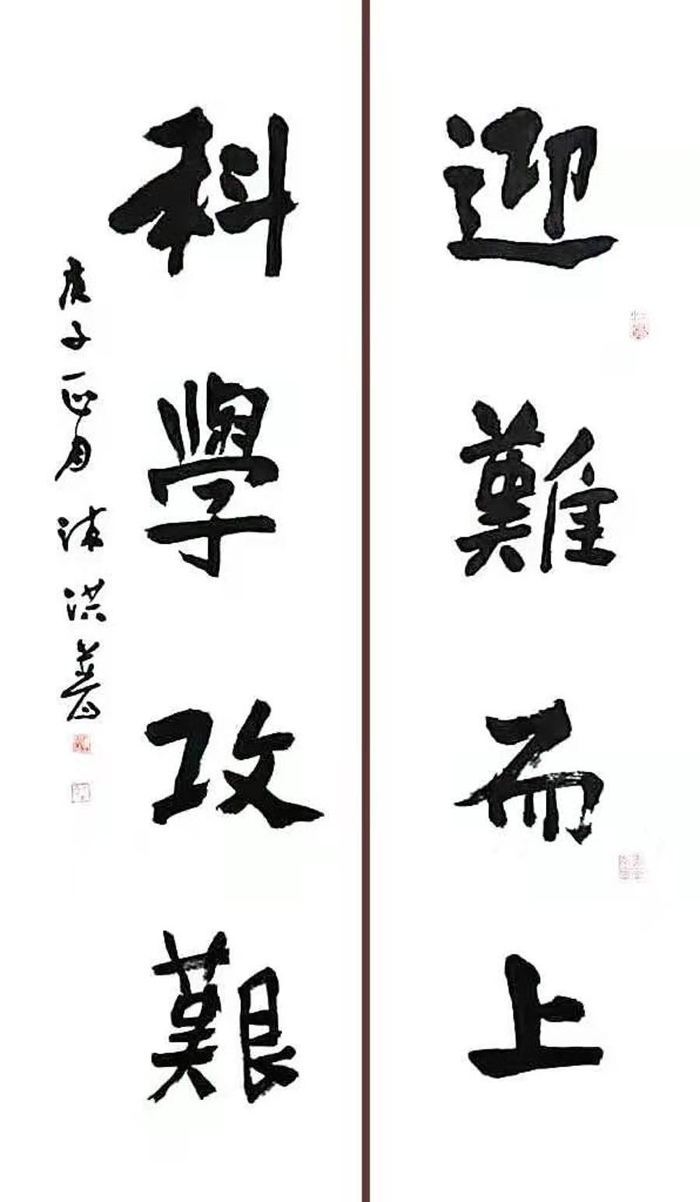 迎難而上
科學攻艱
庚子正月 洪普